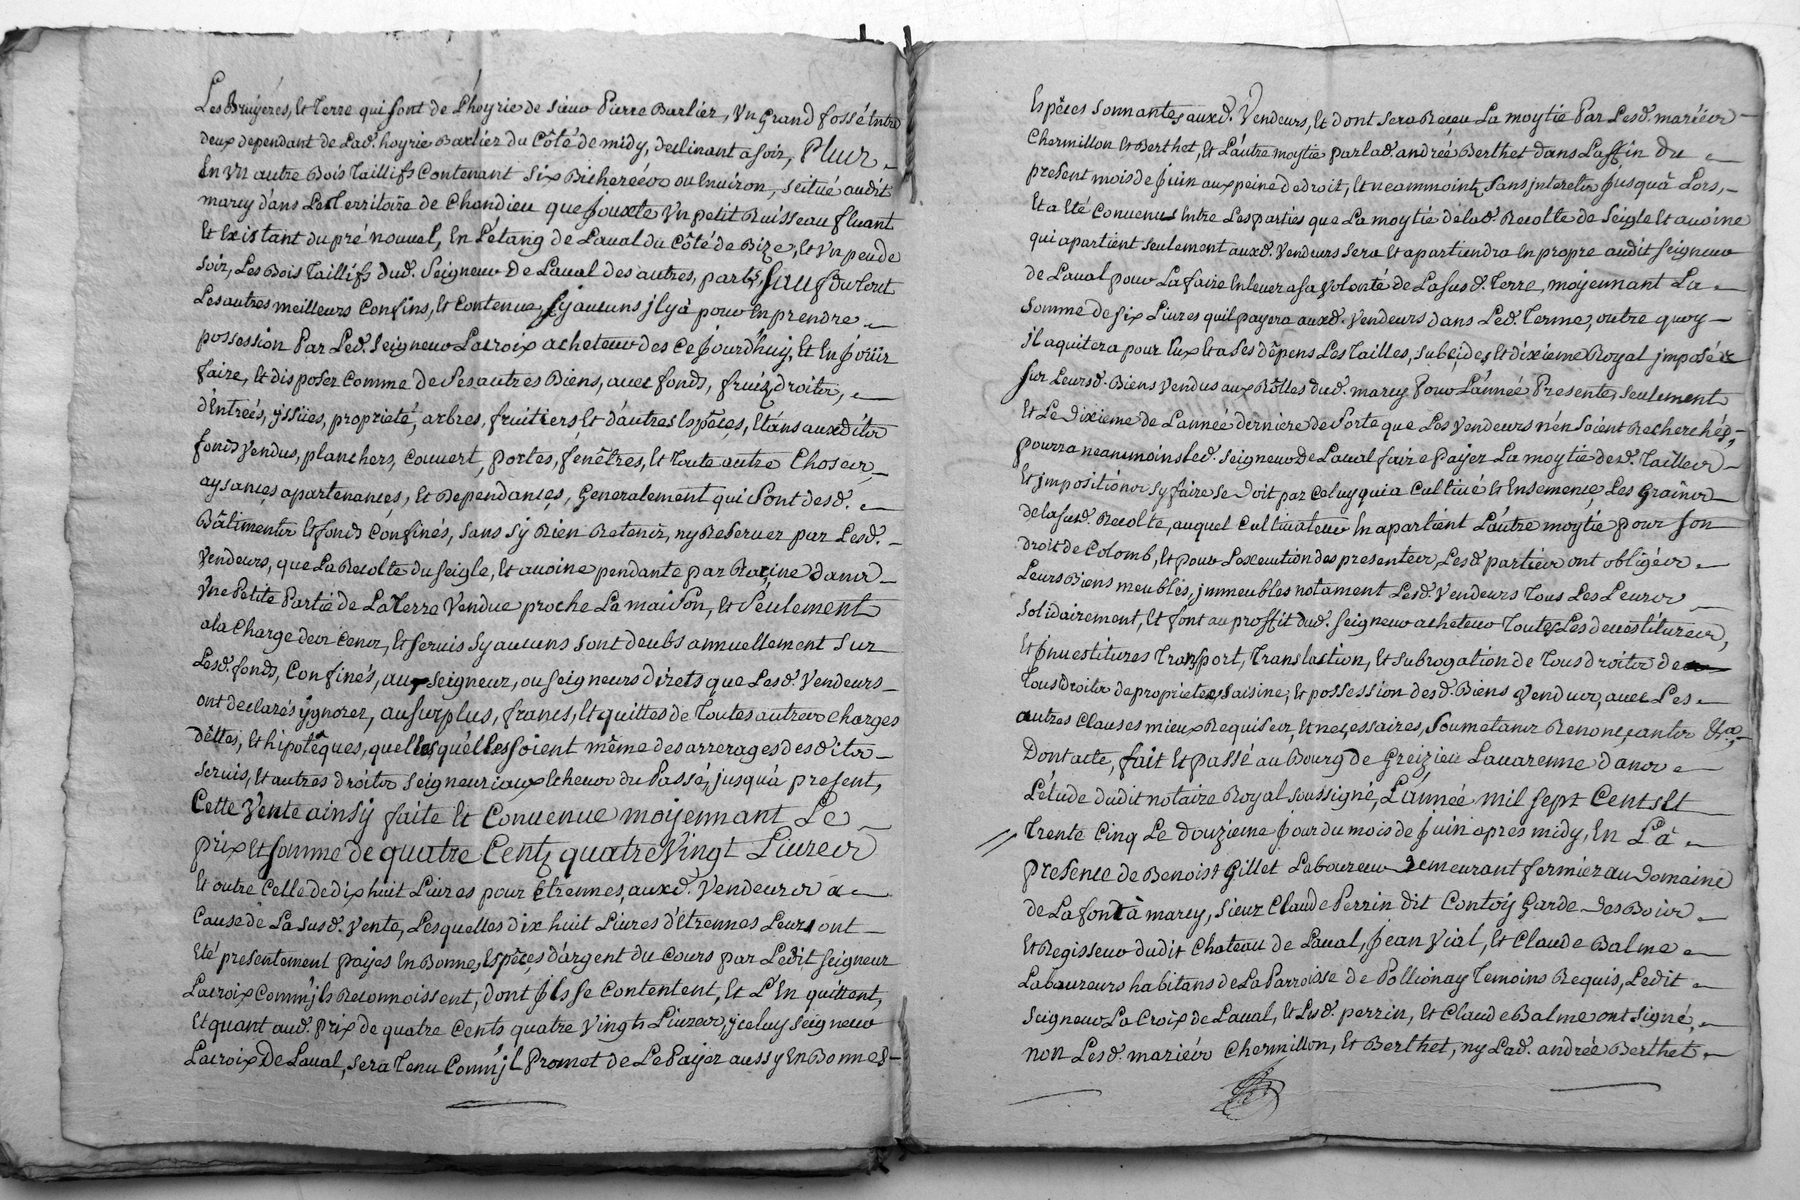 Les Bruyéres, Et Terre qui sont de L'hoyrie de sieur Pierre Barlier, Un Grand fossé Entre
deux dependant de Lad. hoyrie Barlier du Côté de midy, declinant a soir, Plus
En Un autre Bois Taillifs Contenant Six Bicherées ou Environ, scitué audit
marcy dans Le Territoire de Chandieu que Jouxte Un petit Ruisseau fluant
Et Existant du pré nouval, En L'étang de Laval du Côté de Bize, Et Un peu de
soir, Les Bois Taillifs dud. Seigneur De Laval des autres, parts, Sauf Surtout
Les autres meilleurs Confins, Et Contenue sy aucuns jl y à pour En prendre
possession Par Led. Seigneur Lacroix acheteur des Ce Jourd'huy, Et En Joüir
faire, Et disposer Comme de Ses autres Biens, avec fonds, fruits, droits,
d'Entreés, yssües, proprieté, arbres, fruitiers Et d'autres Espéces, Etans auxdits
fonds Vendus, planchers, Couvert, portes, fénêtres, Et Toute autre Choses,
aysances apartenances, Et Dependances, Generalement qui Sont desd.
Bâtiments Et fonds Confinés, sans sy Rien Retenir, ny Reserver par Lesd.
Vendeurs, que La Recolte du Seigle, Et avoine pendante par Racine dans
Une Petite Partie de La Terre Vendue proche La maison, Et Seulement
a la Charge des Cens, Et servis sy aucuns sont deubs annuellement sur
Lesd. fonds, Confinés, aux seigneur, ou seigneurs direts que Lesd. Vendeurs
ont declarés ygnorer, au Surplus, francs, Et quittes de Toutes autres Charges
dêttes, Et hipotêques, quelles qu'elles soient même des arrerages desdits
servis, Et autres droits seigneuriaux Echeus du Passé, jusqu'à present,
Cette Vente ainsy faite Et Convenue moyennant Le
prix Et somme de quatre Cents quatre Vingt Livres
Et outre Celle de dix huit Livres pour Etrennes, auxd. Vendeurs a
Cause de La susd. Vente, Lesquelles dix huit Livres d'Etrennes Leurs ont
Eté presentement payés En Bonnes, Espéces d'argent du Cours par Ledit seigneur
Lacroix Comm'jls Reconnoissent, dont Jls se Contentent, Et L'En quittent,
Et quant aud. prix de quatre Cents quatre Vingts Livres, jceluy seigneur
Lacroix De Laval, sera Tenu Comm'jl Promet de Le Payer aussy En Bonnes
Espéces sonnantes auxd. Vendeurs, Et dont sera Receu La moytié Par Lesd. mariés
Chermillon Et Berthet, Et L'autre moytié par lad. andrée Berthet dans La ffin du
present mois de Juin aux peine de droit, Et neammoints sans jnterets Jusqu'à Lors,
Et a Eté Convenus Entre Les parties que La moytié de lad. Recolte de seigle Et avoine
qui apartient seulement auxd. Vendeurs sera Et apartiendra En propre audit seigneur
de Laval pour La faire Enlever a sa Volonté de La susd. Terre, moyennant La
somme de six Livres qu'il payera auxd. Vendeurs dans Led. Terme, outre quoy
jl aquitera pour Eux Et a ses dépens Les Tailles, subcides Et dixieme Royal jmposés
sur Leursd. Biens Vendus aux Rôlles dud. marcy Pour L'anneé Presente, seulement
Et Le dixieme de L'année derniere de Sorte que Les Vendeurs n'én soient Recherchés,
pourra neanmoins led. seigneur De Laval faire Payer La moytié desd. Tailles
Et jmpositions sy faire se doit par Celuy qui a Cultivé Et Ensemencé Les Grains
de la susd. Recolte, auquel Cultivateur En apartient L'autre moytié pour son
droit de Colomb, Et pour L'execution des presentes, Lesd. parties ont obligés
Leurs Biens meublés, jmmeubles notament Lesd. Vendeurs Tous Les Leurs
solidairement, Et font au proffit dud. seigneur acheteur Toutes Les devestitures,
Et Jnvestitures Transport, Translaction, Et subrogation de Tous droits de
Tous Droits de proprietes, saisine, Et possession desd. Biens Vendus, avec Les
autres Clauses mieux Requises, Et necessaires, soumetans Renonçants &a.
Dont acte, fait Et passé au Bourg de Greizieu Lavarenne dans
L'étude dudit notaire Royal soussigné, L'année mil sept Cents Et
Trente Cinq Le douzieme Jour du mois de Juin apres midy, En La
Presence de Benoist Gillet Laboureur Demeurant fermier au domaine
de La font à marcy, Sieur Claude Perrin dit Contois Garde des Bois
Et Regisseur dudit Chateau de Laval, Jean Vial, Et Claude Balme
Laboureurs habitans de La Parroisse de Pollionay Temoins Requis, Ledit
seigneur La Croix de Laval, Et Lesd. perrin, Et Claude Balme ont signé,
non Lesd. mariés Chermillon, Et Berthet, ny Lad. andrée Berthet